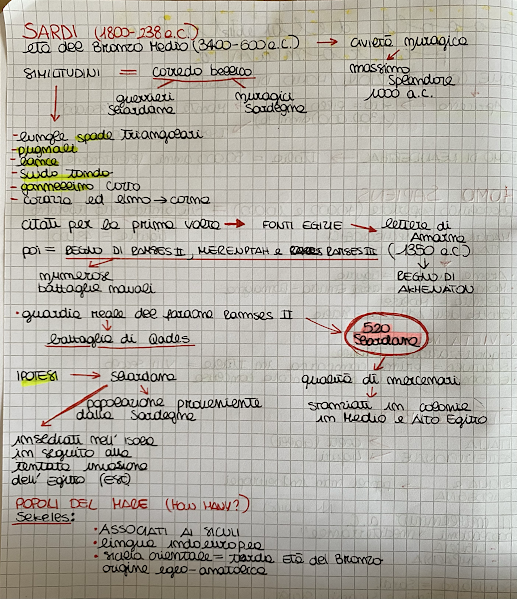 SARDI (1800-238 a.C.)
età del Bronzo Medio (3400-600 a.C.) → civiltà nuragica
massimo splendore 1000 a.C.
SIMILITUDINI = corredo bellico
guerrieri Shardana
nuragici Sardegna
- lunghe spade triangolari
- pugnali
- lance
- scudo tondo
- gonnellino corto
- corazza ed elmo → corna
citati per la prima volta → FONTI EGIZIE → lettere di Amarna
(1350 a.C.)
↓
REGNO DI AKHENATON
poi = REGNO DI RAMSES II, MERENPTAH e RAMSES III
numerose battaglie navali
• guardia reale del faraone Ramses II → 520 Shardana
battaglia di Qadeš
qualità di mercenari
stanziati in colonie in Medio e Alto Egitto
IPOTESI → shardana
popolazione proveniente dalla Sardegna
insediati nell' isola
in seguito alla
tentata invasione
dell' Egitto
POPOLI DEL MARE (HOW MANY?)
Sekeles:
• ASSOCIATI AI SICULI
• lingua indoeuropea
• sicilia orientale = tarda Età del Bronzo
origine egeo-anatolica